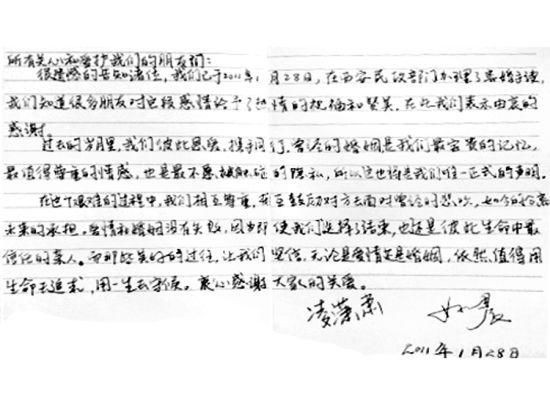 所有关心和爱护我们的朋友们：
很遗憾的告知诸位，我们已于2011年1月28日，在西安民政部门办理了离婚手续，
我们知道很多朋友对这段感情给予了热情的祝福和赞美，在此我们表示由衷的
感谢。
过去的岁月里，我们彼此恩爱，携手同行，曾经的婚姻是我们最宝贵的记忆，
最值得尊重的情感，也是最不愿被触碰的隐私，所以这也将是我们唯一正式的声明。
在这个艰难的过程中，我们相互尊重，相互鼓励对方去面对曾经的悲欢，如今的分离
未来的承担。爱情和婚姻没有失败，因为即使我们选择了结束，也还是彼此生命中最
信任的亲人。而那些美好的过往，让我们坚信，无论是爱情还是婚姻，依然值得用
生命去追求，用一生去守候。衷心感谢大家的关爱。
凌潇肃 姚晨
2011年1月28日